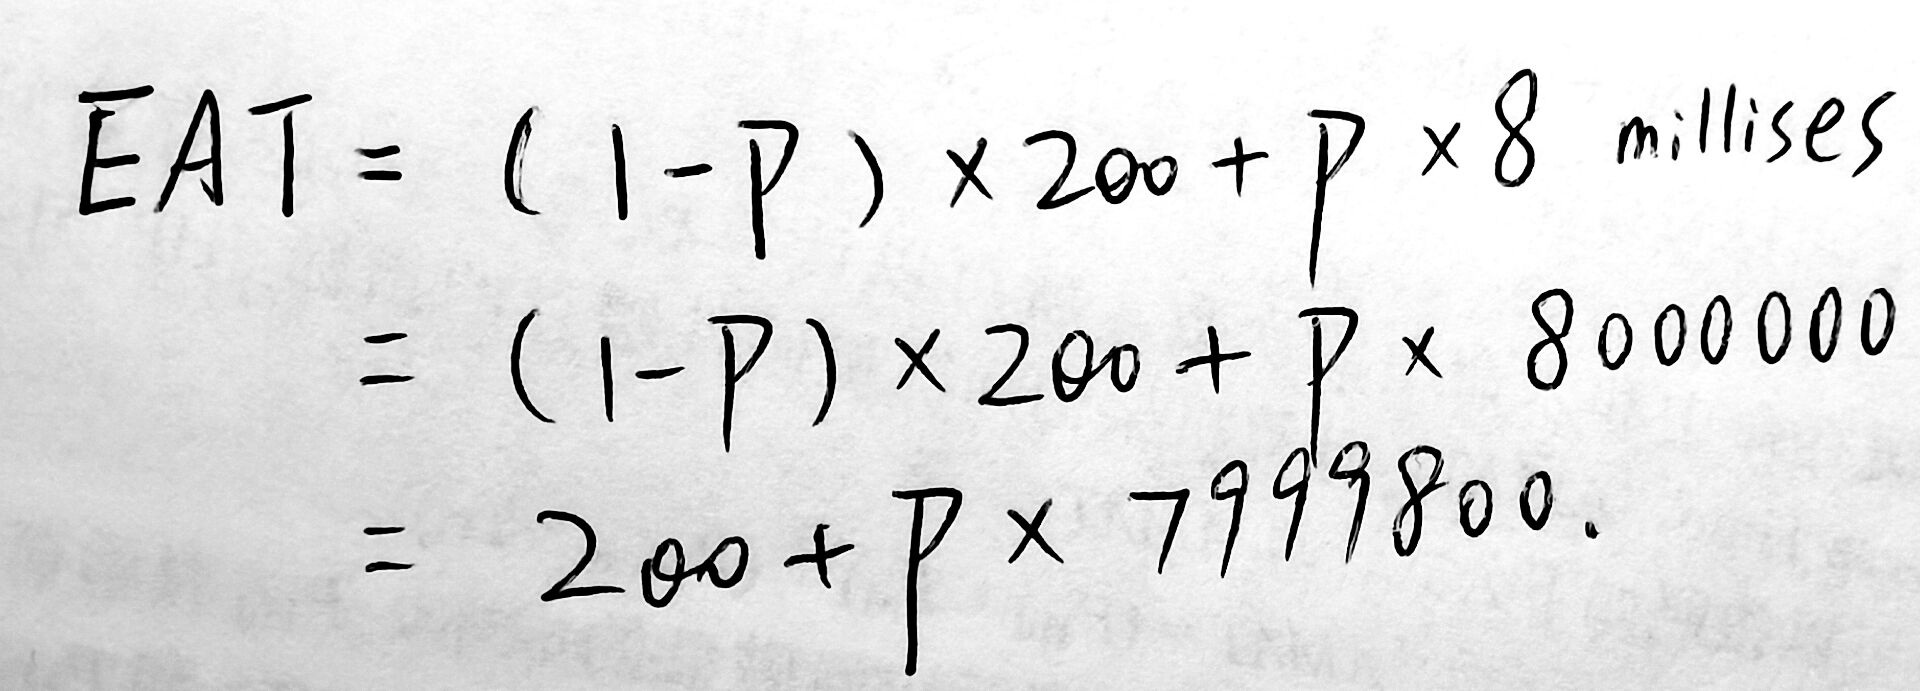 EAT = (1-P) × 200 + P × 8 millises
= (1-P) × 200 + P × 8000000
= 200 + P × 7999800.